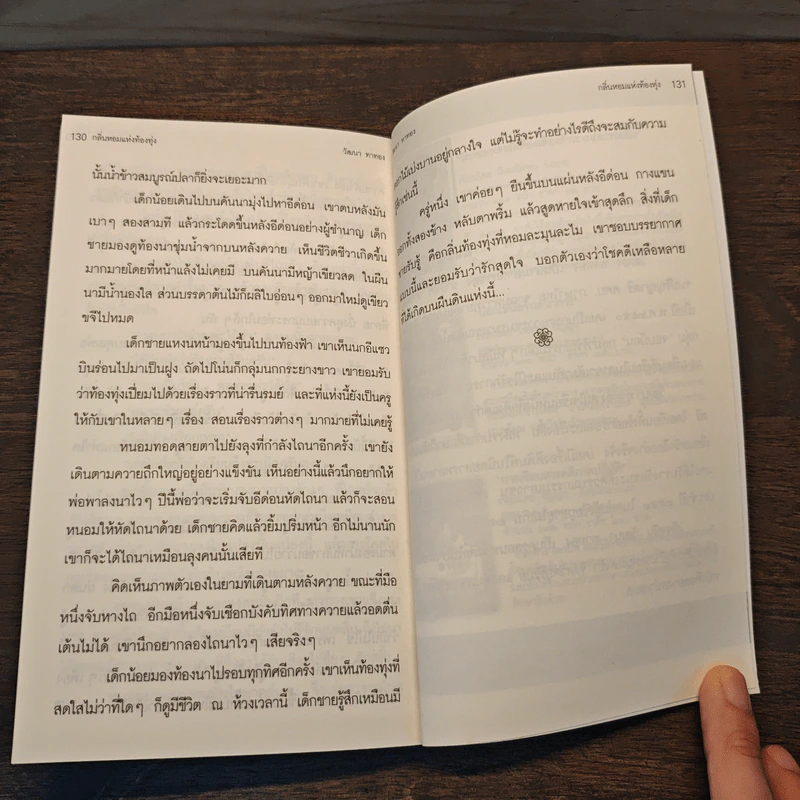 130 กลิ่นหอมแห่งท้องทุ่ง
วัฒนา ทาทอง
นั้นน้ำข้าวสมบูรณ์ปลาก็ยิ่งจะเยอะมาก
เด็กน้อยเดินไปบนคันนามุ่งไปหาอีด่อน เขาตบหลังมัน
เบาๆ สองสามที แล้วกระโดดขึ้นหลังอีด่อนอย่างผู้ชำนาญ เด็ก
ชายมองดูท้องนาชุ่มน้ำจากบนหลังควาย เห็นชีวิตชีวาเกิดขึ้น
มากมายโดยที่หน้าแล้งไม่เคยมี บนคันนามีหญ้าเขียวสด ในผืน
นามีน้ำนองใส ส่วนบรรดาต้นไม้ก็ผลิใบอ่อนๆ ออกมาใหม่ดูเขียว
ขจีไปหมด
เด็กชายแหงนหน้ามองขึ้นไปบนท้องฟ้า เขาเห็นนกอีแซว
บินร่อนไปมาเป็นฝูง ถัดไปโน่นก็กลุ่มนกกระยางขาว เขายอมรับ
ว่าท้องทุ่งเปี่ยมไปด้วยเรื่องราวที่น่ารื่นรมย์ และที่แห่งนี้ยังเป็นครู
ให้กับเขาในหลายๆ เรื่อง สอนเรื่องราวต่างๆ มากมายที่ไม่เคยรู้
หนอมทอดสายตาไปยังลุงที่กำลังไถนาอีกครั้ง เขายัง
เดินตามควายถึกใหญ่อยู่อย่างแข็งขัน เห็นอย่างนี้แล้วนึกอยากให้
พ่อพาลงนาไวๆ ปีนี้พ่อว่าจะเริ่มจับอีด่อนหัดไถนา แล้วก็จะสอน
หนอมให้หัดไถนาด้วย เด็กชายคิดแล้วยิ้มปริ่มหน้า อีกไม่นานนัก
เขาก็จะได้ไถนาเหมือนลุงคนนั้นเสียที
คิดเห็นภาพตัวเองในยามที่เดินตามหลังควาย ขณะที่มือ
หนึ่งจับหางไถ อีกมือหนึ่งจับเชือกบังคับทิศทางควายแล้วอดตื่น
เต้นไม่ได้ เขานึกอยากลองไถนาไวๆ เสียจริงๆ
เด็กน้อยมองท้องนาไปรอบทุกทิศอีกครั้ง เขาเห็นท้องทุ่งที่
สดใสไม่ว่าที่ใดๆ ก็ดูมีชีวิต ณ ห้วงเวลานี้ เด็กชายรู้สึกเหมือนมี
กลิ่นหอมแห่งท้องทุ่ง 131
ทาทอง
ไม้เบ่งบานอยู่กลางใจ แต่ไม่รู้จะทำอย่างไรดีถึงจะสมกับความ
รู้สึกเช่นนี้
ครู่หนึ่ง เขาค่อยๆ ยืนขึ้นบนแผ่นหลังอีด่อน กางแขน
ออกทั้งสองข้าง หลับตาพริ้ม แล้วสูดหายใจเข้าสุดลึก สิ่งที่เด็ก
ชายรับรู้ คือกลิ่นท้องทุ่งที่หอมละมุนละไม เขาชอบบรรยากาศ
แบบนี้และยอมรับว่ารักสุดใจ บอกตัวเองว่าโชคดีเหลือหลาย
ที่ได้เกิดบนผืนดินแห่งนี้...